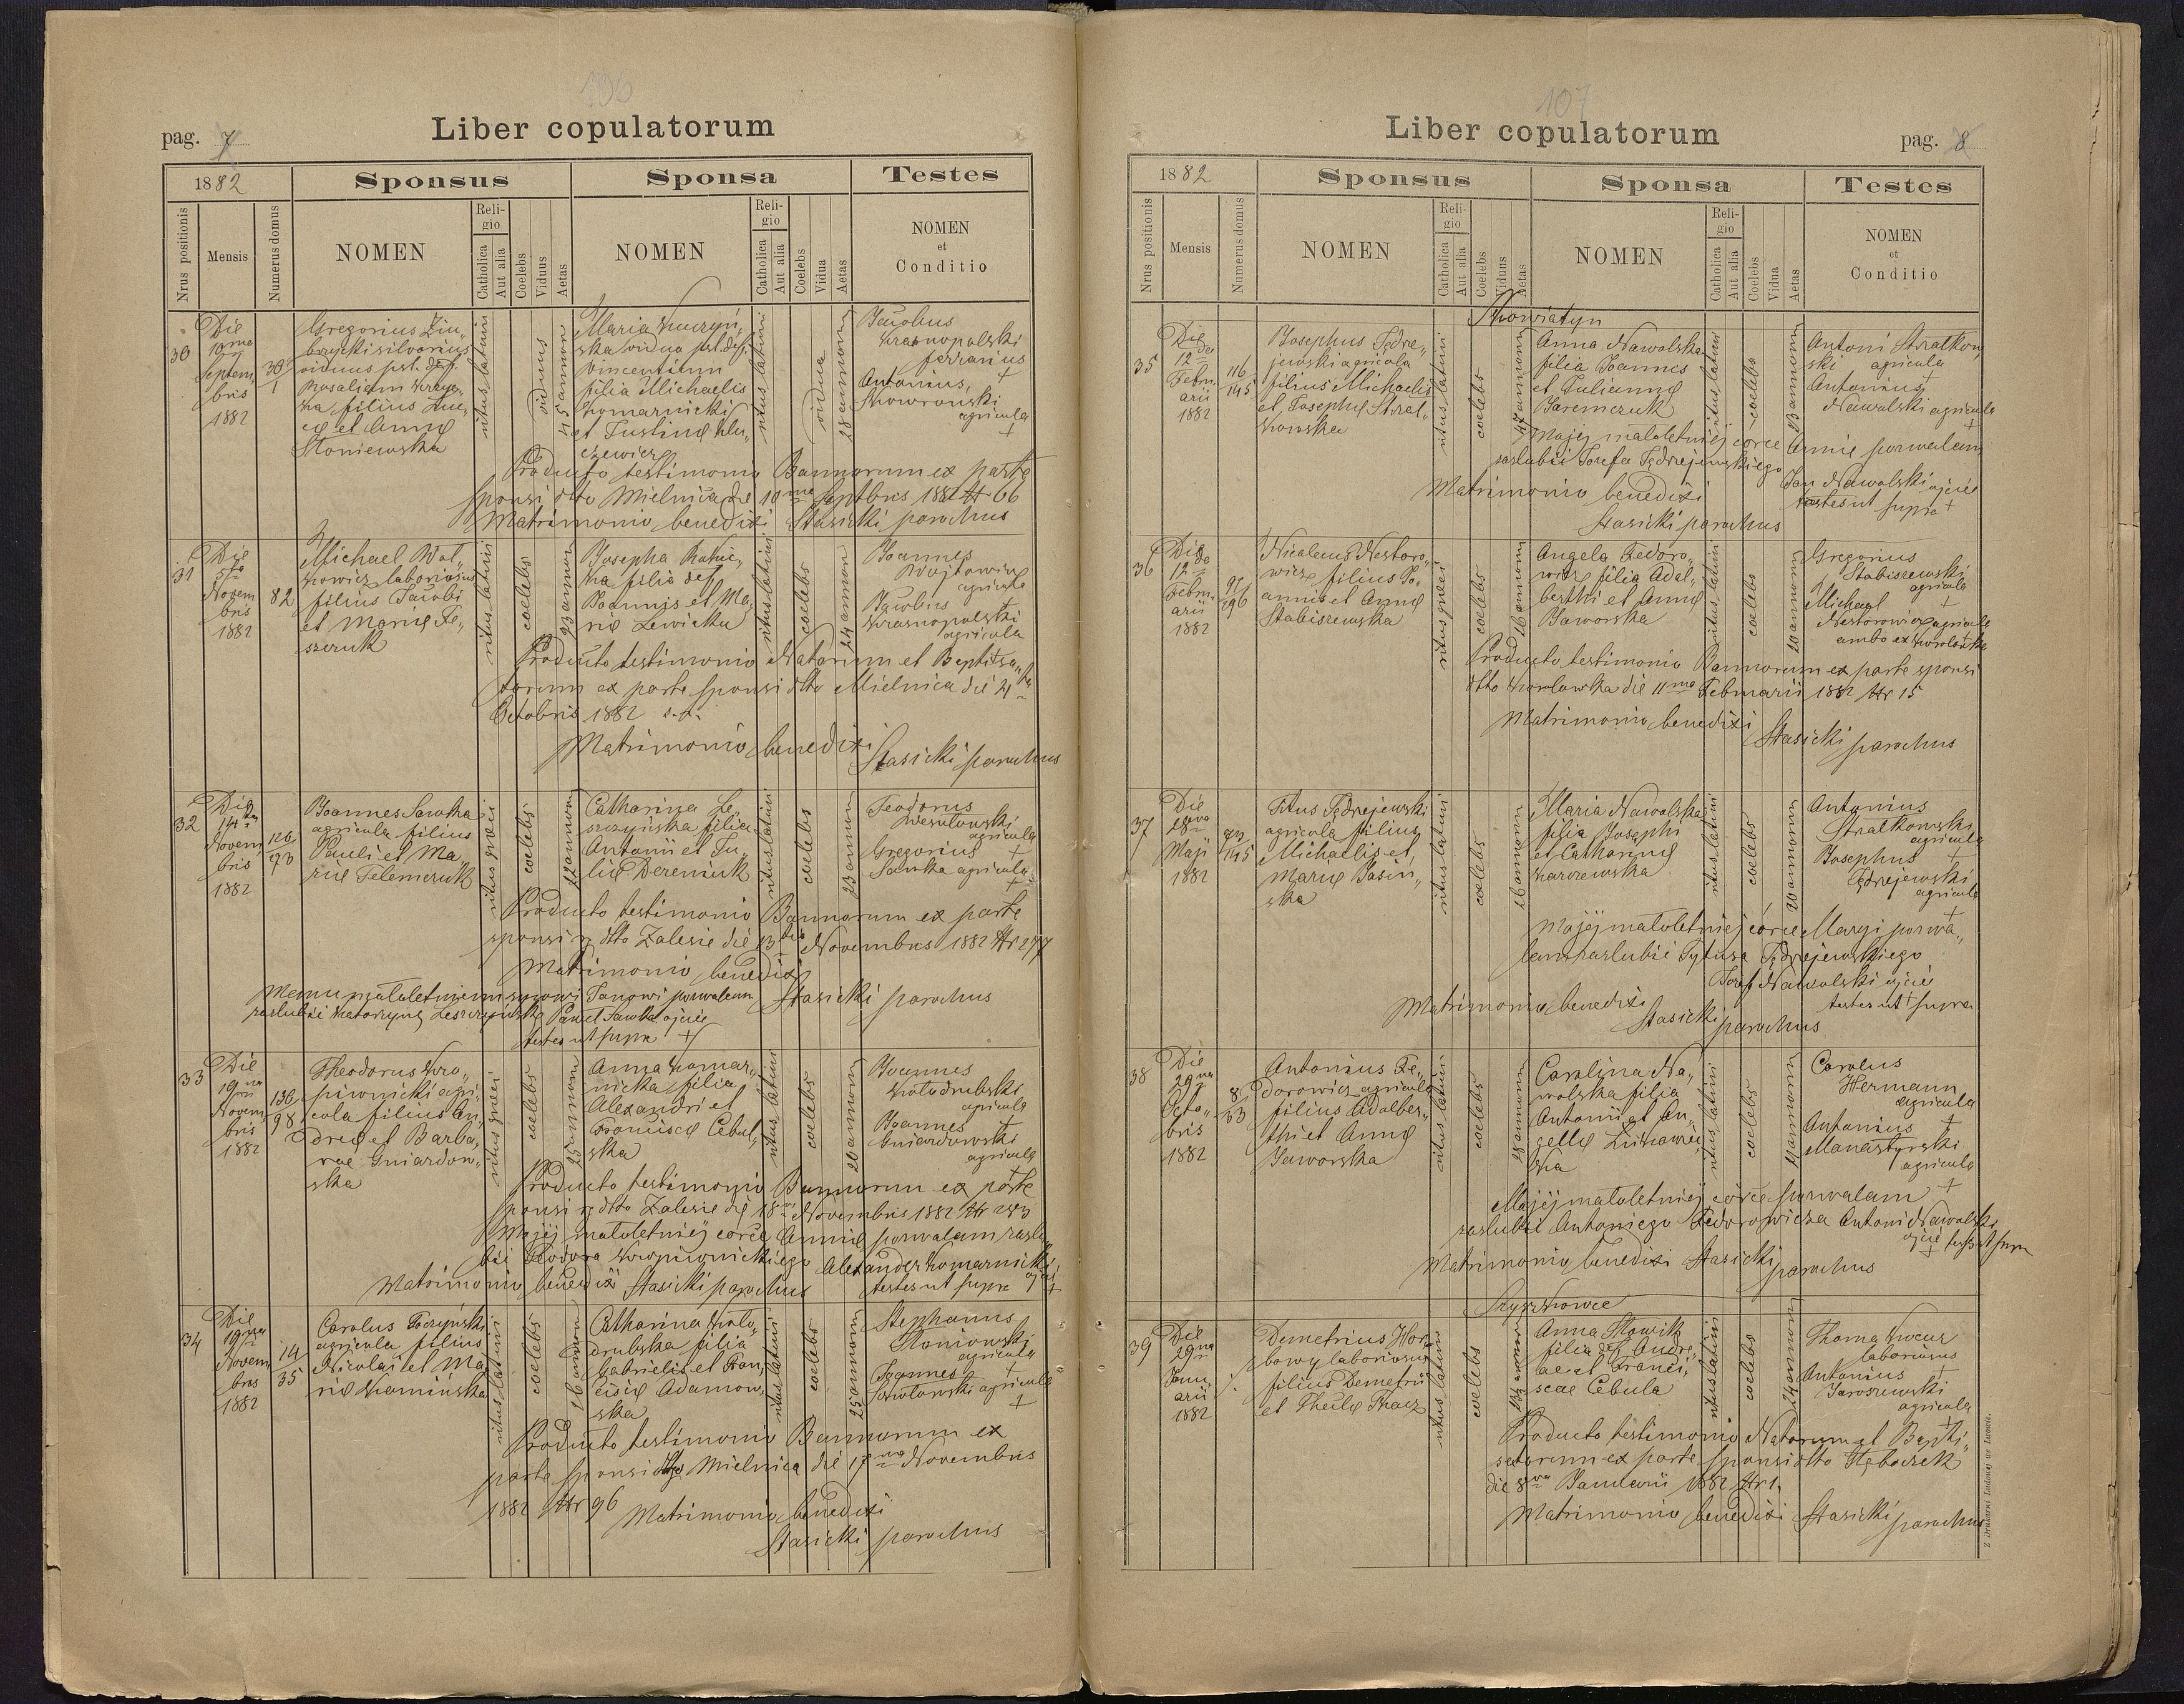 106
Liber copulatorum
pag. 7
1882
Sponsus
Sponsa
Testes
Nrus positionis
Mensis
Numerus domus
NOMEN
Religio
Catholica
Aut alia
Coelebs
Viduus
Aetas
NOMEN
Religio
Catholica
Aut alia
Coelebs
Vidua
Aetas
NOMEN
et
Conditio
30
Die
10ma
Septem
bris
1882
30/1
Gregorius
brycki silvarius
viduus pst. def.
Rosaliam
ka filius Lu,,
cę et Annę
Słoniewska
ritus latini
viduus
45 annorum
Maria
ska vidua pst. def.
Vincentium
filia Michaelis
Komarnicki
et Justinę Klu,,
czewicz
ritus latini
vidua
28 annorum
Jacobus
Krasnopolski
ferrarius
+
Antonius
Skowronski
agricola
+
Producto testimonio Bannorum ex parte
sponsi dtto Mielnica die 10ma Septbris 1882 Nr 66
Matrimonio benedixi Stasicki parochus
31
Die
5ta
Novem
bris
1882
82
Michael Woł,,
kowicz laboriosus
filius Jacobi
et Marię Fe,,
szczuk
ritus latini
coelebs
23 annorum
Josepha Rohic,,
ka filia def.
Joannis et Ma,,
rię Lewicka
ritus latini
coelebs
24 annorum
Joannes
Wojtowicz
agricola
+
Jacobus
Krasnopolski
agricola
Producto testimonio Natorum et Baptisa,,
torum ex parte sponsi dtto Mielnica die 21
Octobris 1882
Matrimonio benedixi
Stasicki parochus
32
Die
14ta
Novem
bris
1882
126/73
Joannes Sawka
agricola filius
Pauli et Ma,,
rię Telemczuk
ritus graeci
coelebs
22 annorum
Catharina Le,,
szczyńska filia
Antonii et Ju,,
lię Dereniuk
ritus latini
coelebs
23 annorum
Teodorus
Wesołowski
agricola
+
Gregorius
Sawka agricola
+
Producto testimonio Bannorum ex parte
sponsi dtto Zalesie die 13tia Novembris 1882 Nr 277
Matrimonio benedixi
Memu małoletniemu synowi Janowi pozwalam
Stasicki parochus
zaslubić Katarzynę Leszczyńską Paweł Sawka ojciec
testes ut supra +
33
Die
19na
Novem
bris
1882
136/98
Theodorus Kro,,
piwnicki agri,,
cola filius An,,
dreę et Barba,,
rae Gniazdow,,
ska
ritus graeci
coelebs
25 annorum
Anna Komar,,
nicka filia
Alexandri et
Franciscę Cebul,,
ska
ritus latini
coelebs
20 annorum
Joannes
Kołodrubski
agricola
+
Joannes
Gniazdowski
agricola
+
Producto testimonio Bannorum ex parte
sponsi dtto Zalesie die 18va Novembris 1882 Nr 283
Mojej małoletniej córce Annie pozwalam zaslu
bić Teodora Kropiwnickiego Alexander Komarnicki
ojciec +
Matrimonio benedixi Stasicki parochus
testes ut supra
34
Die
19na
Novem
bris
1882
14/35
Carolus Toczyński
agricola filius
Nicolai et Ma,,
rię Kamińska
ritus latini
coelebs
26 annorum
Catharina Koło,,
drubska filia
Gabrielis et Fran,,
ciscę Adamow,,
ska
ritus latini
coelebs
25 annorum
Stephanus
Romiowski
agricola
+
Joannes
Sawłowski agricola
+
Producto testimonio Bannorum ex
parte sponsi dtto Mielnica die 17ma Novembris
1882 Nr 96
Matrimonio benedixi
Stasicki parochus
107
Liber copulatorum
pag. 8
1882
Sponsus
Sponsa
Testes
Nrus positionis
Mensis
Numerus domus
NOMEN
Religio
Catholica
Aut alia
Coelebs
Viduus
Aetas
NOMEN
Religio
Catholica
Aut alia
Coelebs
Vidua
Aetas
NOMEN
et
Conditio
Skowiatyn
35
Die
12da
Febru
arii
1882
116/145
Josephus Jędre,,
jewski agricola
filius Michaelis
et Josephę Strat,,
kowska
ritus latini
coelebs
47 annorum
Anna Nawolska
filia Joannes
et Juliannę
Jaremczuk
ritus latini
coelebs
23 annorum
Antoni Stratkow,,
ski agricola
+
Antonius
Nawolski agricola
+
Mojej małoletniej córce Annie pozwalam
zaslubić Jozefa Jędrzejewskiego
Jan Nawolski ojciec
Matrimonio benedixi
testes ut supra +
Stasicki parochus
36
Die
12da
Febru
arii
1882
97/296
Nicolaus Nestoro,,
wicz filius Jo,,
annis et Annę
Stabiszewska
ritus graeci
coelebs
26 annorum
Angela Fedoro,,
wicz filia Adal,,
berthi et Annę
Jaworska
ritus latini
coelebs
20 annorum
Gregorius
Stabiszewski
agricola
+
Michael
Nestorowicz agricola
ambo ex Korolowka
Producto testimonio Bannorum ex parte sponsi
dtto Korolowka die 11ma Februarii 1882 Nr 15
Matrimonio benedixi
Stasicki parochus
37
Die
28va
Maji
1882
73/145
Titus Jędrejewski
agricola filius
Michaelis et
Marię Jasiń,,
ska
ritus latini
coelebs
26 annorum
Maria Nawolska
filia Josephi
et Catharinę
Karczewska
ritus latini
coelebs
20 annorum
Antonius
Stratkowski
agricola
+
Josephus
Jędrejewski
agricola
+
Mojej małoletniej córce Maryi pozwa,,
lam zaslubić Tytusa Jędrzejewskiego
Jozef Nawolski ojciec
Matrimonio benedixi
testes ut + supra
Stasicki parochus
38
Die
29na
Octo,,
bris
1882
8/53
Antonius Fe,,
dorowicz agricola
filius Adalber,,
thi et Annę
Jaworska
ritus latini
coelebs
28 annorum
Carolina Na,,
wolska filia
Antonii et An,,
gellę
ka
ritus latini
coelebs
21 annorum
Carolus
Hermann
agricola
+
Antonius
Manastyrski
agricola
+
Mojej małoletniej córce pozwalam
zaslubić Antoniego Fedorowicza Antoni Nawolski
ojciec + testes ut supra
Matrimonio benedixi Stasicki
parochus
Szyszkowce
39
Die
29na
Janu,,
arii
1882
Demetrius Hor,,
bowy laboriosus
filius Demetrii
et Theclę Tkacz
ritus latini
coelebs
34 annorum
Anna Słowik
filia def. Andre,,
ae et Franci,,
scae Cebula
ritus latini
coelebs
24 annorum
Thoma Kucur
laboriosus
+
Antonius
Jaroszewski
agricola
+
Producto testimonio Natorum et Bapti,,
satorum ex parte sponsi dtto Głęboczek
die 8va Januarii 1882 Nr 1.
Matrimonio benedixi Stasicki
parochus
Z Drukarni Ludowej we Lwowie.